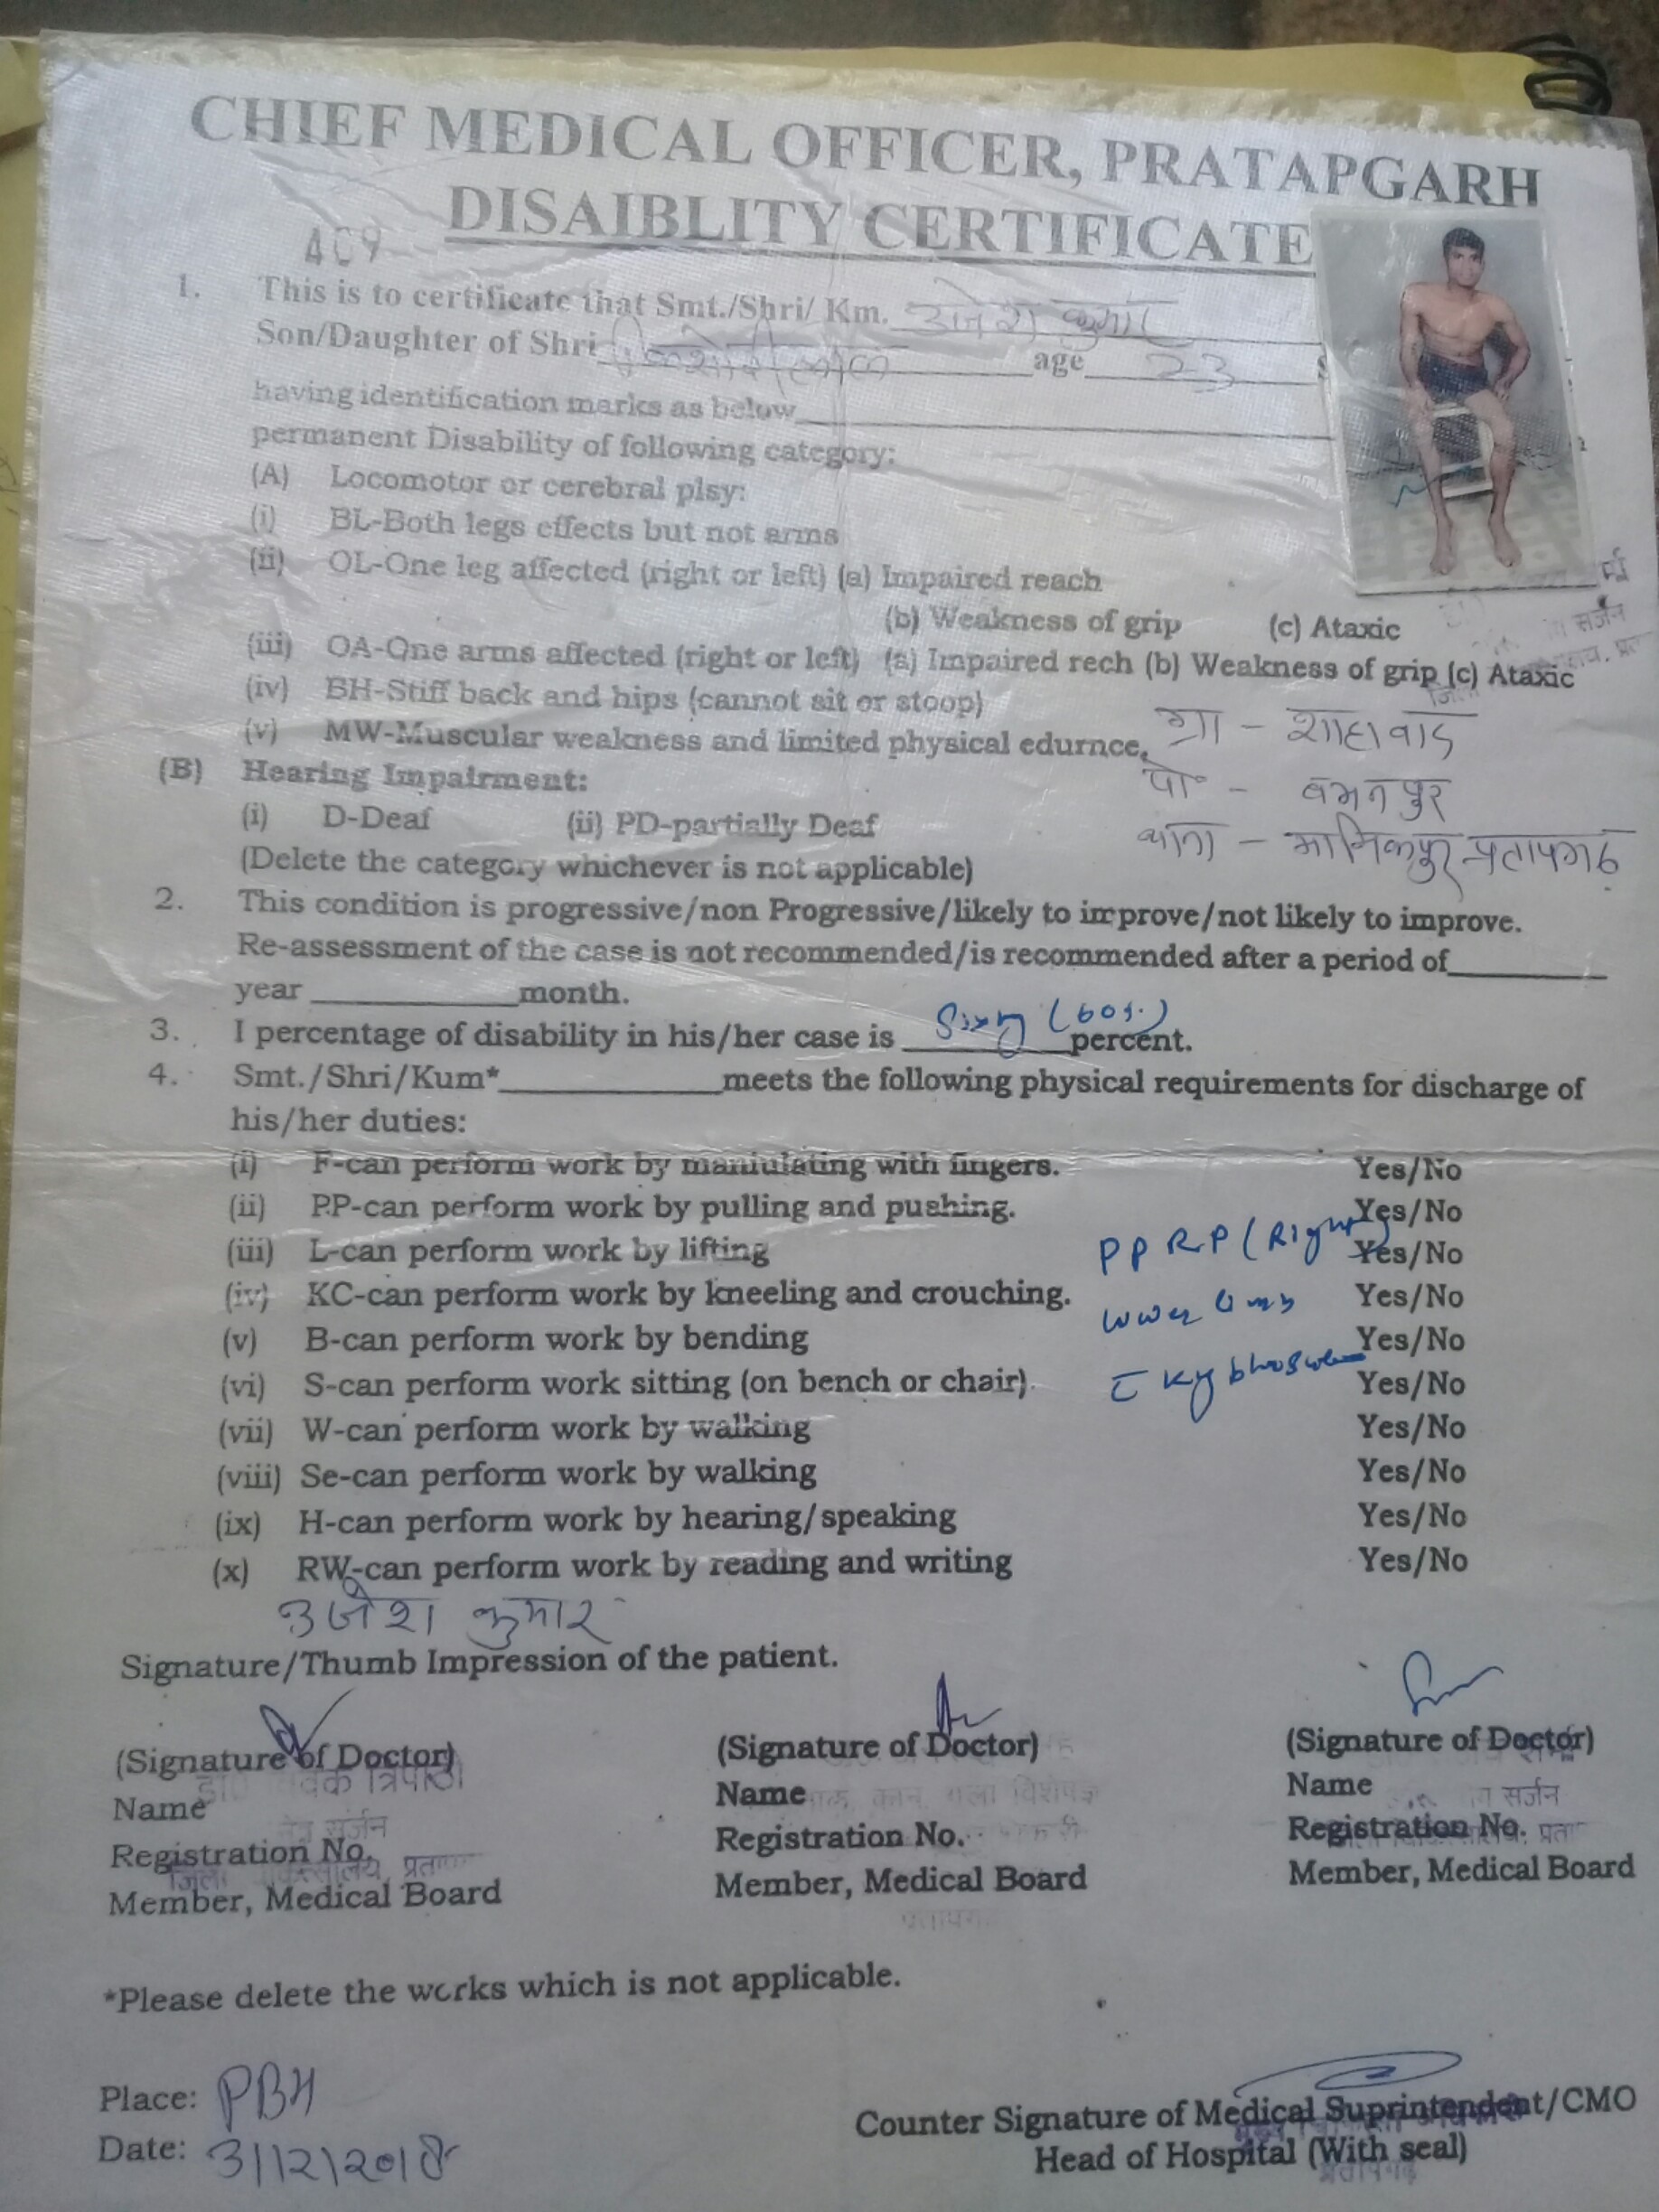 CHIEF MEDICAL OFFICER, PRATAPGARH
DISAIBLITY CERTIFICATE
409
1. This is to certificate that Smt./Shri/ Km. उजेश कुमार
Son/Daughter of Shri age 23
having identification marks as below
permanent Disability of following category:
(A) Locomotor or cerebral plsy:
(i) BL-Both legs effects but not arms
(ii) OL-One leg affected (right or left) (a) Impaired reach
(b) Weakness of grip (c) Ataxic
सर्जन
(iii) OA-One arms affected (right or left) (a) Impaired rech (b) Weakness of grip (c) Ataxic
(iv) BH-Stiff back and hips (cannot sit or stoop)
(v) MW-Muscular weakness and limited physical edurnce,
ग्रा - शाहावाद
(B) Hearing Impairment:
पो० - बभनपुर
(i) D-Deaf (ii) PD-partially Deaf
थाना - मानिकपुर प्रतापगढ़
(Delete the category whichever is not applicable)
2. This condition is progressive/non Progressive/likely to improve/not likely to improve.
Re-assessment of the case is not recommended/is recommended after a period of
year month.
3. I percentage of disability in his/her case is Sixty (60%) percent.
4. Smt./Shri/Kum* meets the following physical requirements for discharge of
his/her duties:
(i) F-can perform work by maniulating with fingers. Yes/No
(ii) PP-can perform work by pulling and pushing. Yes/No
(iii) L-can perform work by lifting PPRP (Right) Yes/No
(iv) KC-can perform work by kneeling and crouching. Yes/No
lower limb
(v) B-can perform work by bending Yes/No
(vi) S-can perform work sitting (on bench or chair). Yes/No
(vii) W-can perform work by walking Yes/No
(viii) Se-can perform work by walking Yes/No
(ix) H-can perform work by hearing/speaking Yes/No
(x) RW-can perform work by reading and writing Yes/No
उजेश कुमार
Signature/Thumb Impression of the patient.
(Signature of Doctor) (Signature of Doctor) (Signature of Doctor)
त्रिपाठी
Name Name Name
कान, गला विशेषज्ञ
सर्जन सर्जन
Registration No. Registration No. Registration No.
Member, Medical Board Member, Medical Board Member, Medical Board
*Please delete the works which is not applicable.
Place: PBH
Date: 3/12/2018
Counter Signature of Medical Suprintendent/CMO
Head of Hospital (With seal)
प्रतापगढ़